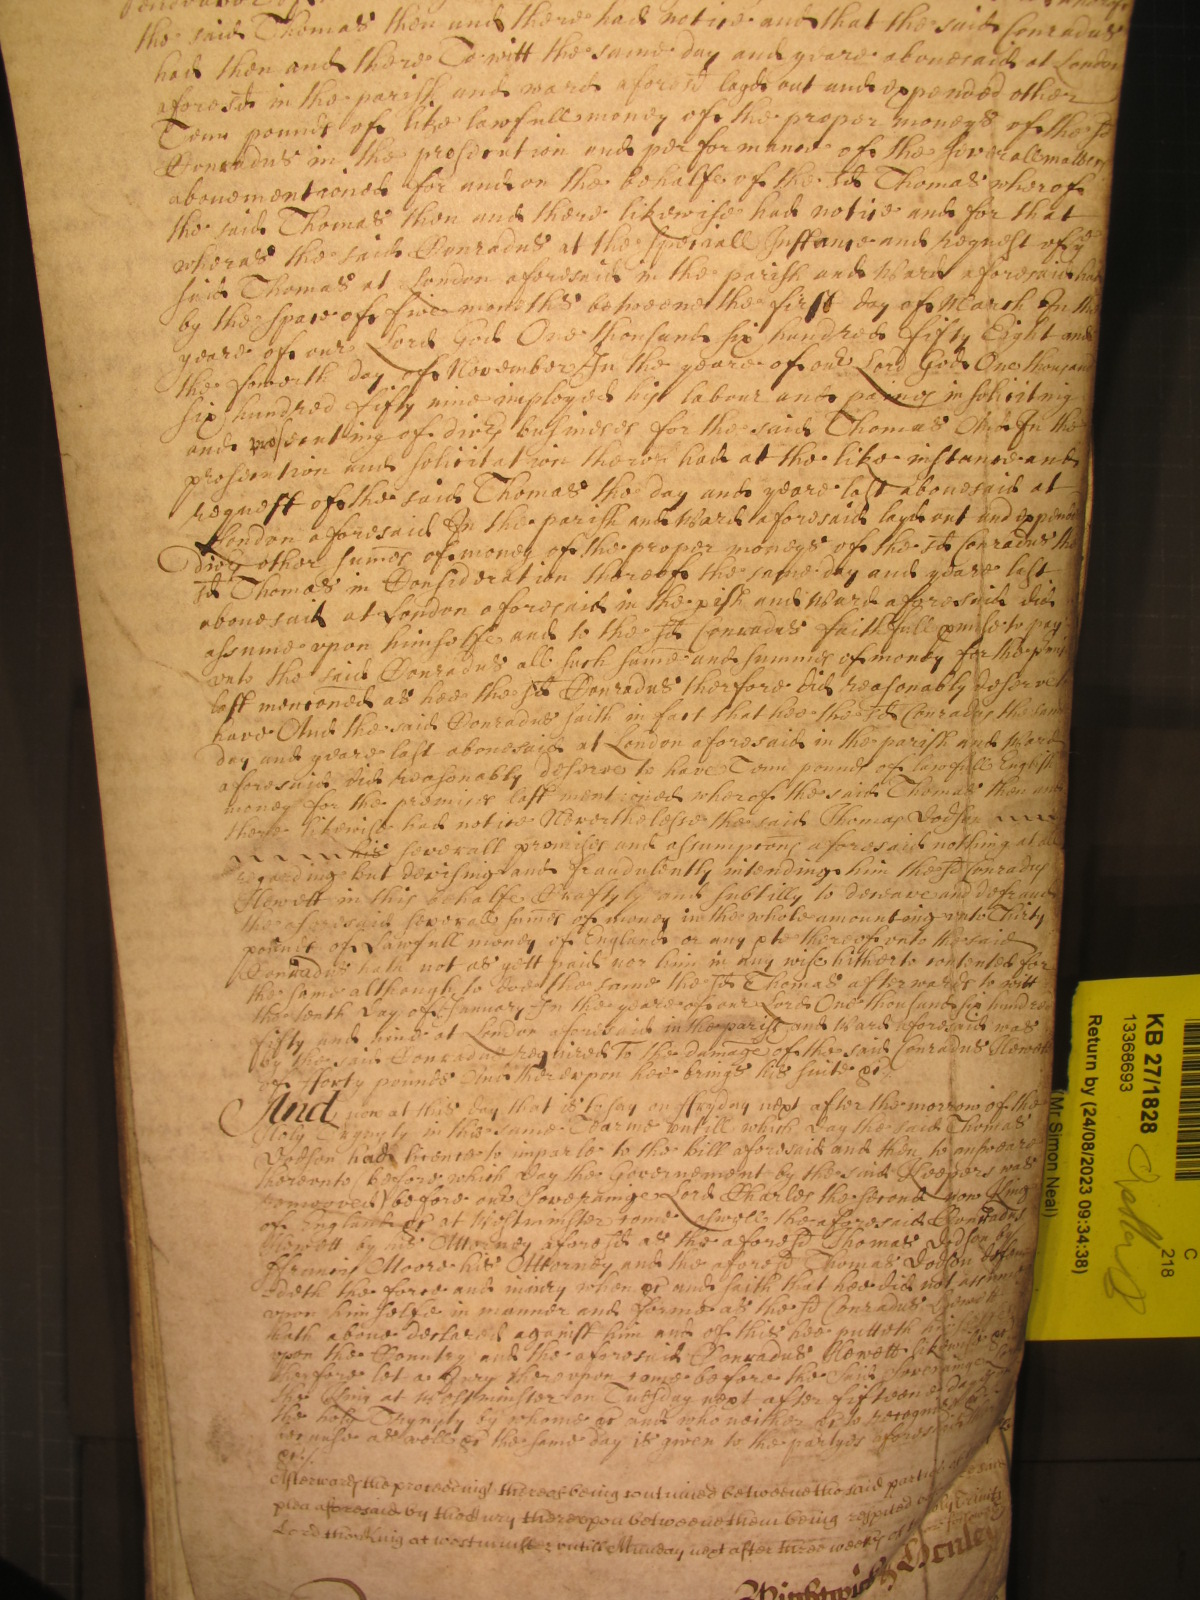 the said Thomas then and there had notice and that the said Conradus
had then and there To witt the same day and yeare abovesaid at London
aforesd in the parish and ward aforesd layd out and expended other
Tenn pounds of like lawfull money of the proper moneys of the sd
Conradus in the prosecution and performance of the severall matters
abovementioned for and on the behalfe of the sd Thomas wherof
the said Thomas then and there likewise had notice and for that
wheras the said Conradus at the speciall Instance and request of ye
said Thomas at London aforesaid in the parish and Ward aforesaid had
by the space of five moneths betweene the first day of March In the
yeare of our Lord God One thousand six hundred fifty Eight and
the fowerth day of November In the yeare of our Lord God One thousand
six hundred fifty nine imployed his labour and paines in soliciting
and prosecuting of divrs busineses for the said Thomas And In the
prosecution and solicitation therof had at the like instance and
request of the said Thomas the day and yeare last abovesaid at
London aforesaid In the parish and Ward aforesaid layd out and expended
Divrs other sumes of money of the proper moneys of the sd Conradus the
sd Thomas in Consideration thereof the same day and yeare last
abovesaid at London aforesaid in the pish and Ward aforesaid did
assume upon himselfe and to the sd Conradus faithfull pmise to pay
unto the said Conradus all such sume and summes of money for the
last menconed as hee the sd Conradus therfore did reasonably deserve to
have And the said Conradus saith in fact that hee the sd Conradus the same
day and yeare last abovesaid at London aforesaid in the parish and Ward
aforesaid did reasonably deserve to have Tenn pounds of lawfull English
money for the premises last mentioned wherof the said Thomas then and
there likewise had notice Neverthelesse the said Thomas Dodson
his severall promises and assumptons aforesaid nothing at all
regarding but devising and fraudulently intending him the sd Conradus
Hewett in this behalfe Craftyly and subtilly to deceave and defraud
the aforesaid severall sumes of money in the whole amounting unto Thirty
pounds of Lawfull money of England or any pte thereof unto the said
Conradus hath not as yett paid nor him in any wise hitherto contented for
the same although to doe the same the sd Thomas afterwards to witt
the tenth day of January In the yeare of our Lord One thousand six hundred
fifty and nine at London aforesaid in the parish and Ward aforesaid was
by the said Conradus required To the damage of the said Conradus Hewett
of Forty pounds And thereupon hee brings his suite &c
And now at this day that is to say on Fryday next after the morrow of the
Holy Trynyty in this same Tearme untill which day the said Thomas
Dodson had licence to imparle to the bill aforesaid and then to answeare
thereunto (before which day the Governement by the said Keepers was
removed) before our Soveraigne Lord Charles the second now King
of England &c at Westminster come aswell the aforesaid Conradus
Hewett by his Attorney aforesd as the aforesd Thomas Dodson by
Francis Moore his Attorney and the aforesd Thomas Dodson defen
deth the force and injury when &c and saith that hee did not assume
upon himselfe in manner and forme as the sd Conradus Hewett
hath above declared against him and of this hee putteth himselfe
upon the Country and the aforesaid Conradus Hewett likewise &c
therfore let a Jury thereupon come before the said Soveraigne
the King at Westminster on Tuesday next after fifteene dayes
the holy Trynyty by whome &c and who neither &c to recognize &c
because aswell &c the same day is given to the partyes aforesaid
&c
Afterwards the proceedings thereof being continued betweene the said parties
plea aforesaid by the Jury thereupon betweene them being respited
Lord the King at Westminster untill Munday next after three weeks of the holy Trinity
Henley
KB 27/1828
13368693
Return by (24/08/2023 09:34:38)
(Mr Simon Neal)
C
218